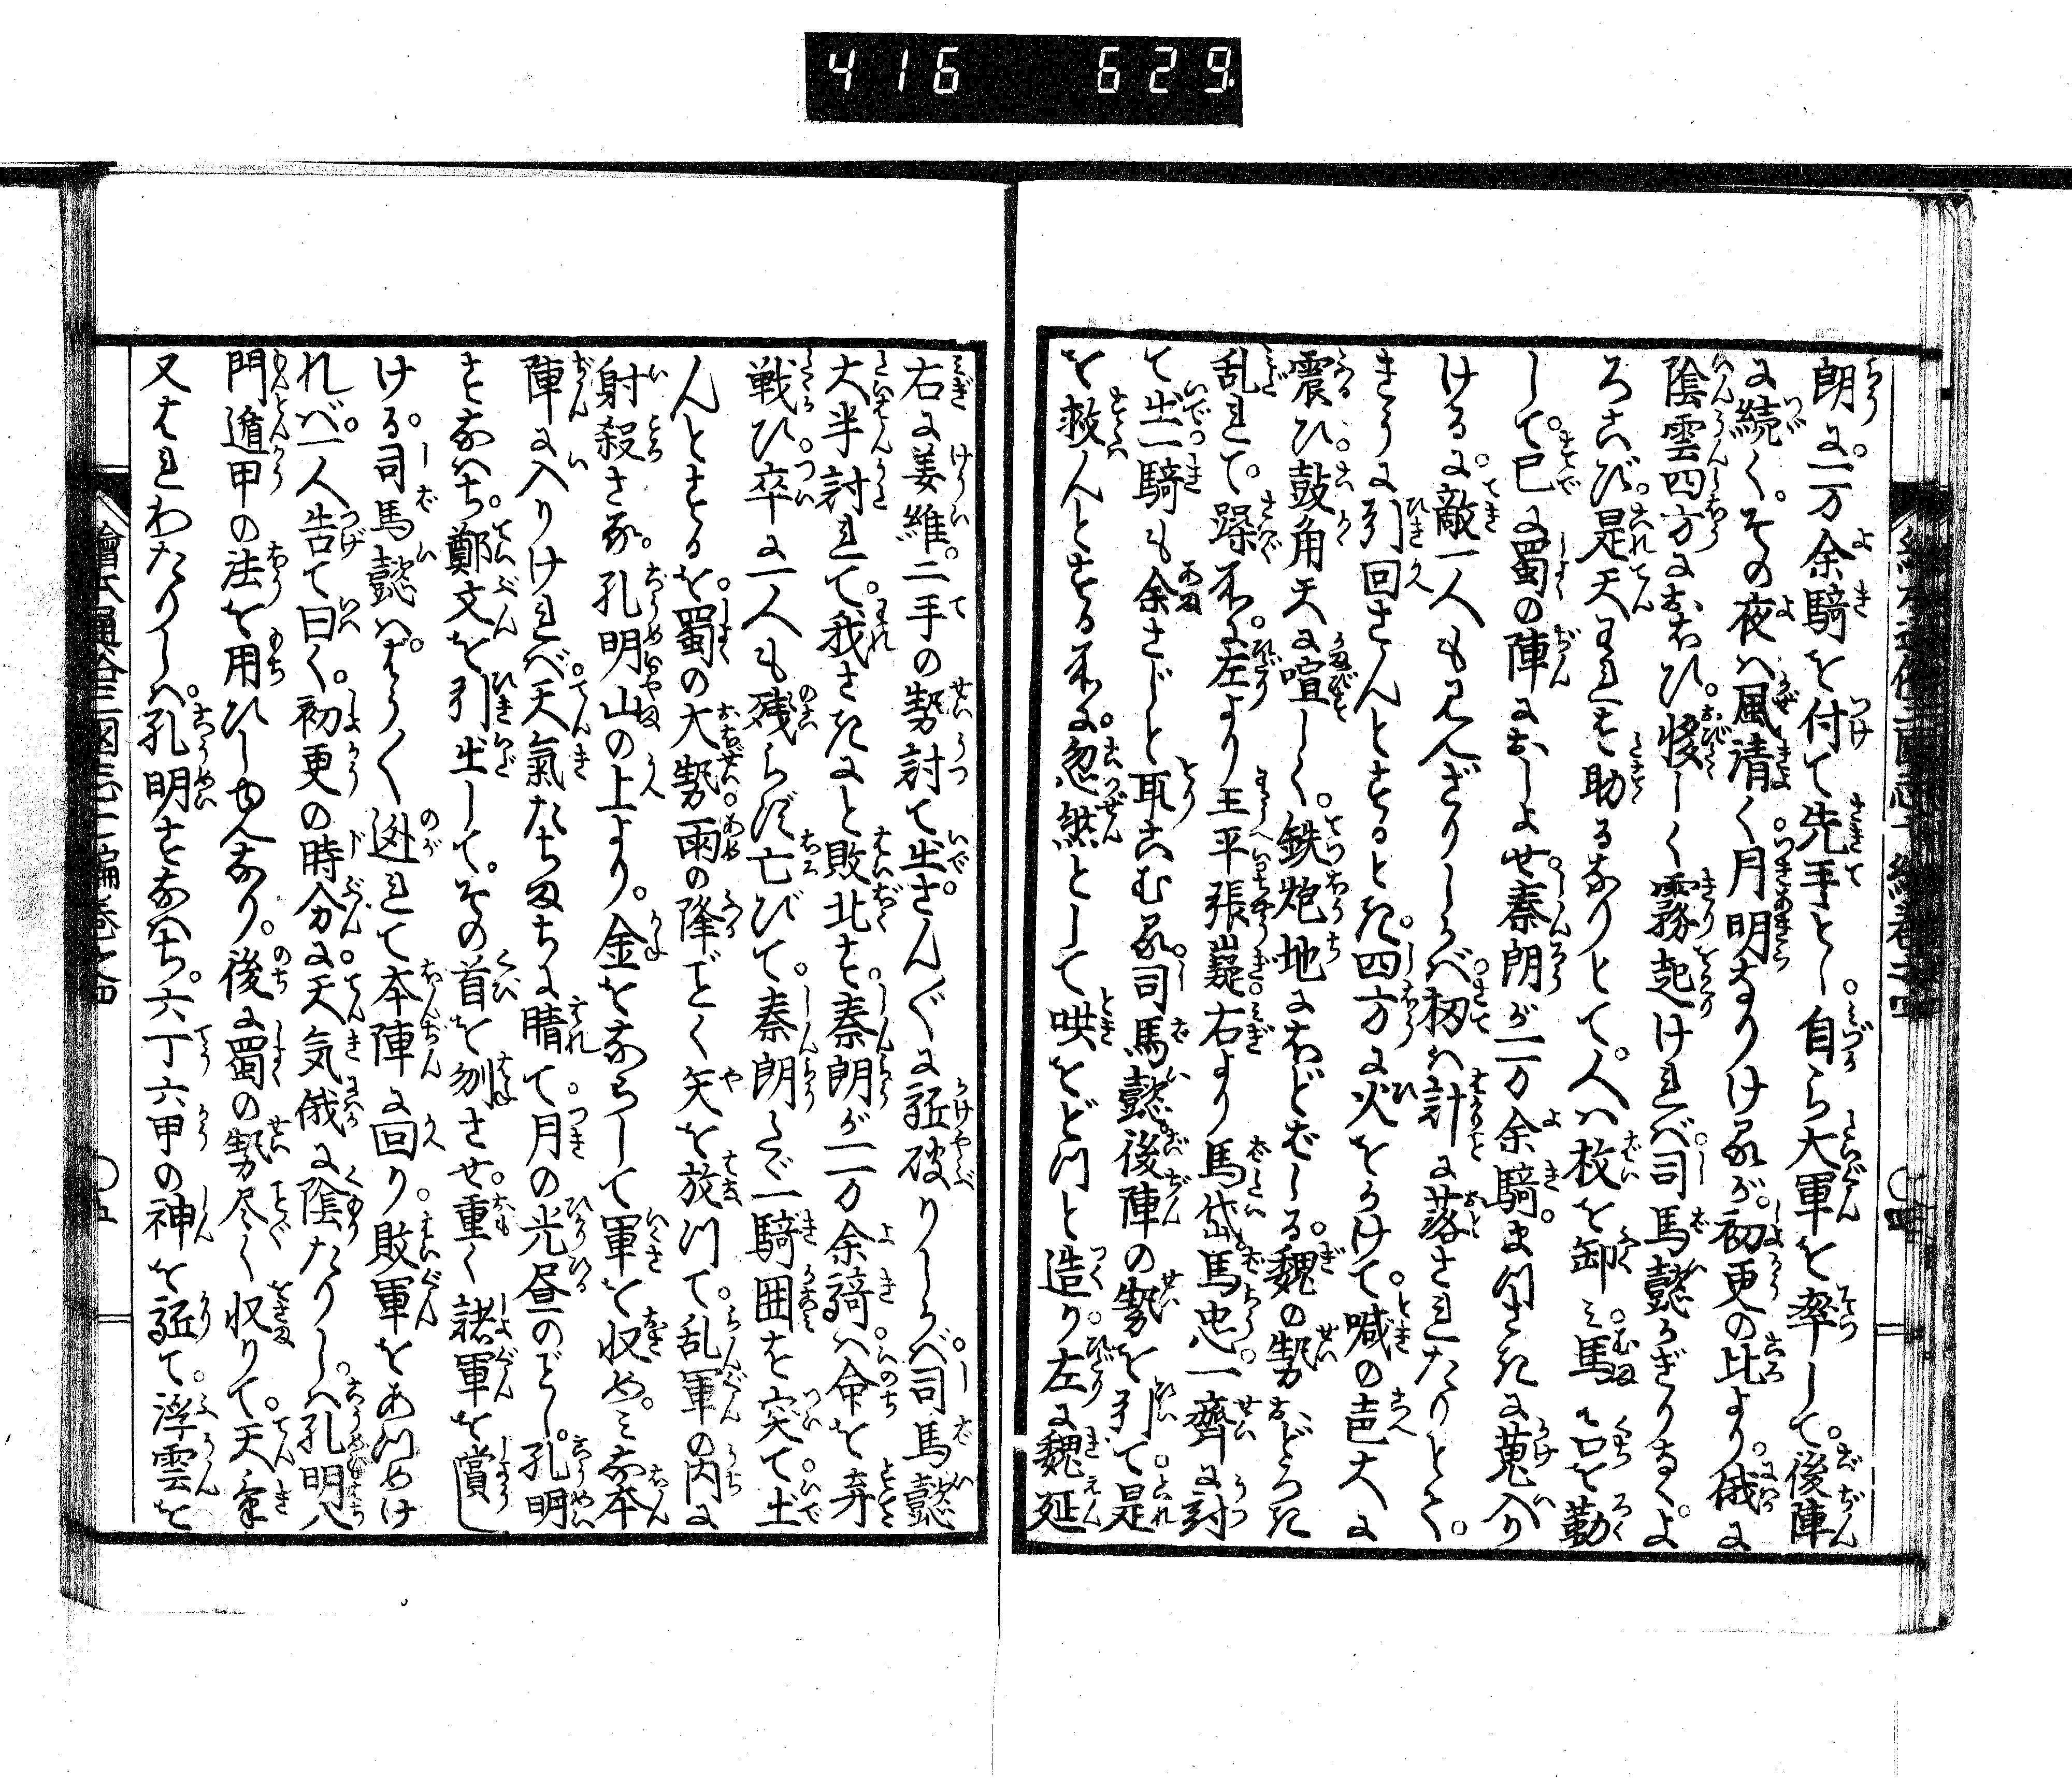 416 629
朗に。一万余騎を付て先手とし。自ら大軍を率して。後陣
に続く。その夜は風清く月明なりけるが。初更の比より。俄に
陰雲四方におほひ。〱しく霧起ければ。司馬懿かぎりなくよ
ろこび。是天われを助るなりとて。人は枚を卸み。馬は口を勒
して。已に蜀の陣におしよせ。秦朗が一万余騎。まつさきに蒐入り
けるに。敵一人も見へざりしかば。扨は計に落されたりとて。
きうに引回さんとするとき。四方に火をかけて。喊の声大に
震ひ。鼓角天に喧しく。鉄炮地にほどばしる。魏の勢おどろき
乱れて。躁ぐ所に。左より王平張嶷。右より馬岱。馬忠。一齊に討
て出。一騎も余さじと取こむる。司馬懿。後陣の勢を引て。是
を救んとする所に。忽然として哄をどつと造り。左に魏延
右に姜維。二手の勢討て出。さん〲に跖破りしかば。司馬懿
大半討れて。我さきにと敗北す。秦朗が一万余騎は。命を弃
戦ひ。卒に一人も残らず亡びて。秦朗たゞ一騎囲を突て。出
んとするを。蜀の大勢雨の降ごとく矢を放つて。乱軍の内に
射殺さる。孔明山の上より。金をならして軍を収め。みな本
陣に入りければ。天氣たちまちに晴て。月の光昼のごとし。孔明
すなはち。鄭文を引出して。その首を刎させ。重く諸軍を賞し
ける。司馬懿は。やう〱逃れて本陣に回り。敗軍をあつめけ
れば。一人告て曰く。初更の時分に。天気俄に陰たりしは。孔明八
門遁甲の法を用ひしゆへなり。後に蜀の勢尽く収りて。天氣
又はれわたりしは。孔明すなはち。六丁六甲の神を駈て。浮雲を